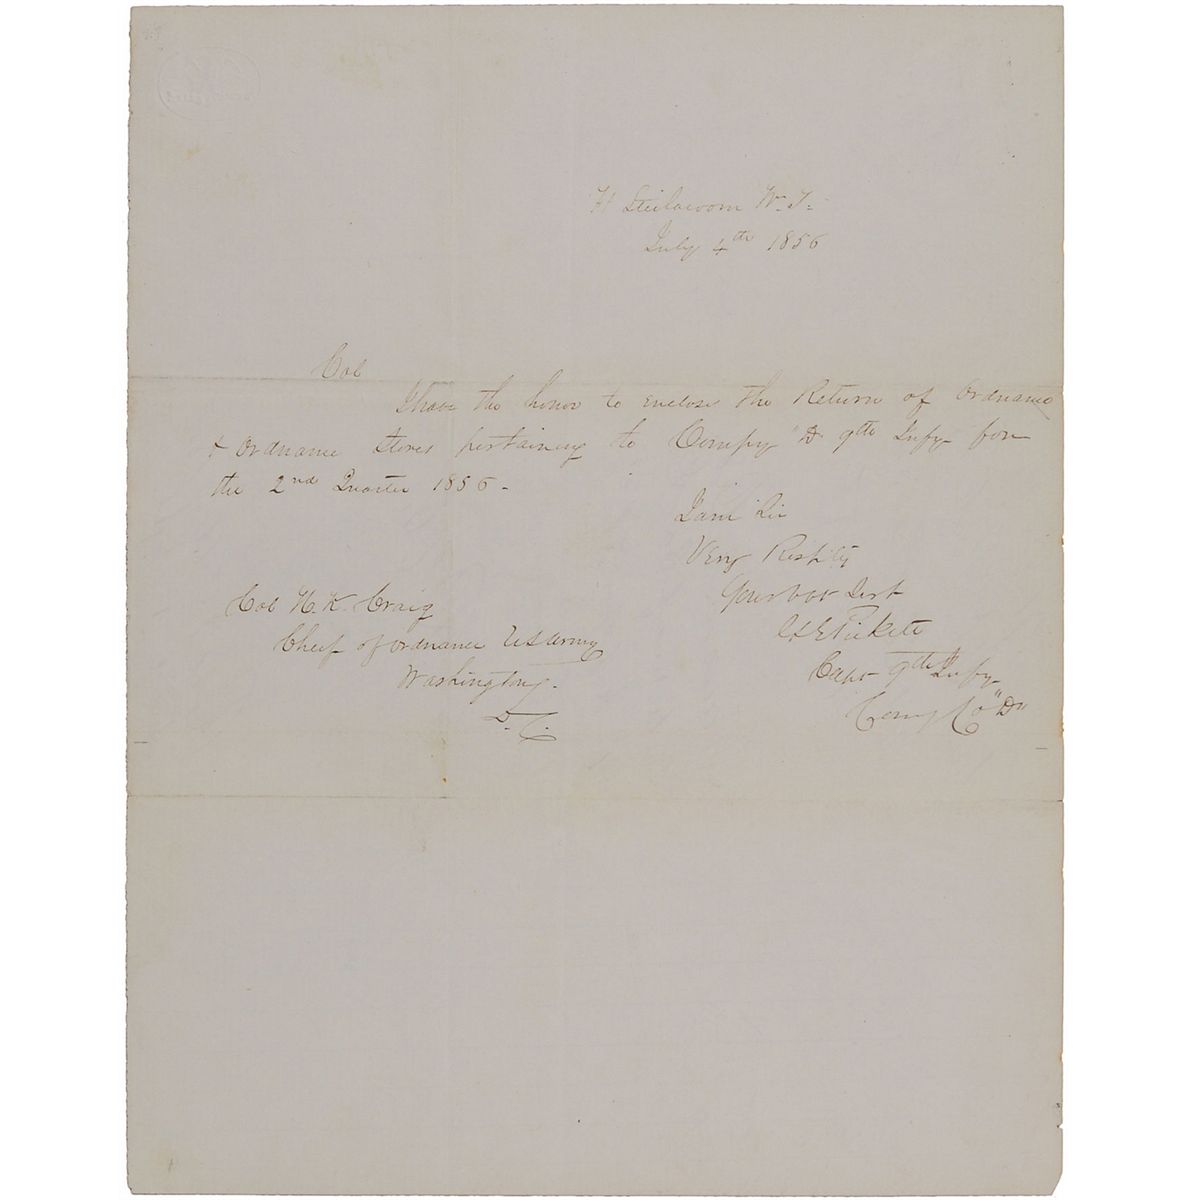 Ft Steilacoom W. T.
July 4th 1856
Col
I have the honor to enclose the Return of Ordnance
& Ordnance Stores pertaining to Compy "D" 9th Infy for
the 2nd Quarter 1856 -
I am Sir
Very Respfly
Your obt Servt
G E Pickett
Capt 9th Infy
Comg Co "D"
Col H. K. Craig
Chief of Ordnance US Army
Washington
D. C.